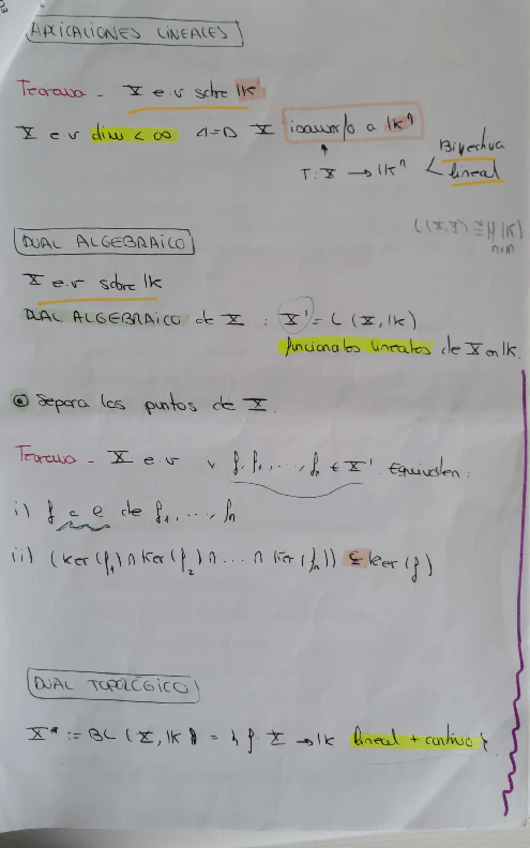 APLICACIONES LINEALES
Teorema - X e.v sobre IK
X e.v dim < ∞ <=> X isomorfo a IKⁿ
T: X → IKⁿ < Biyectiva
lineal
L(X,X) ≅ M (IK)
nxn
DUAL ALGEBRAICO
X e.v sobre IK
DUAL ALGEBRAICO de X : X' = L (X, IK)
funcionales lineales de X en IK.
Separa los puntos de X.
Teorema - X e.v y f, f₁, ..., fₙ ∈ X'. Equivalen:
i) f c e de f₁, ..., fₙ
ii) (ker (f₁) ∩ Ker (f₂) ∩ ... ∩ Ker (fₙ)) ⊆ ker (f)
DUAL TOPOLÓGICO
X* := BL (X, IK) = { f: X → IK lineal + continuo }